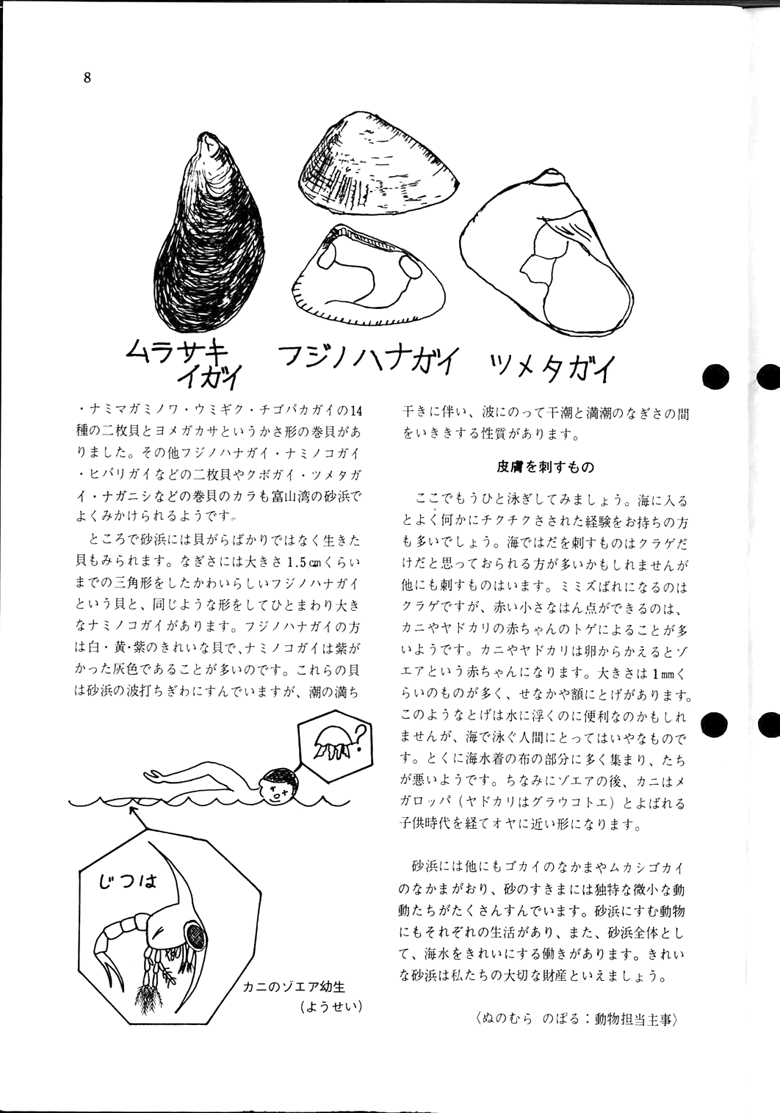 8
ムラサキ
イガイ
フジノハナガイ
ツメタガイ
・ナミマガミノワ・ウミギク・チゴバカガイの14
種の二枚貝とヨメガカサというかさ形の巻貝があ
りました。その他フジノハナガイ・ナミノコガイ
・ヒバリガイなどの二枚貝やクボガイ・ツメタガ
イ・ナガニシなどの巻貝のカラも富山湾の砂浜で
よくみかけられるようです。
ところで砂浜には貝がらばかりではなく生きた
貝もみられます。なぎさには大きさ1.5㎝くらい
までの三角形をしたかわいらしいフジノハナガイ
という貝と、同じような形をしてひとまわり大き
なナミノコガイがあります。フジノハナガイの方
は白・黄・紫のきれいな貝で、ナミノコガイは紫が
かった灰色であることが多いのです。これらの貝
は砂浜の波打ちぎわにすんでいますが、潮の満ち
?
じつは
カニのゾエア幼生
(ようせい)
干きに伴い、波にのって干潮と満潮のなぎさの間
をいききする性質があります。
皮膚を刺すもの
ここでもうひと泳ぎしてみましょう。海に入る
とよく何かにチクチクさされた経験をお持ちの方
も多いでしょう。海ではだを刺すものはクラゲだ
けだと思っておられる方が多いかもしれませんが
他にも刺すものはいます。ミミズばれになるのは
クラゲですが、赤い小さなはん点ができるのは、
カニやヤドカリの赤ちゃんのトゲによることが多
いようです。カニやヤドカリは卵からかえるとゾ
エアという赤ちゃんになります。大きさは1㎜く
らいのものが多く、せなかや額にとげがあります。
このようなとげは水に浮くのに便利なのかもしれ
ませんが、海で泳ぐ人間にとってはいやなもので
す。とくに海水着の布の部分に多く集まり、たち
が悪いようです。ちなみにゾエアの後、カニはメ
ガロッパ(ヤドカリはグラウコトエ)とよばれる
子供時代を経てオヤに近い形になります。
砂浜には他にもゴカイのなかまやムカシゴカイ
のなかまがおり、砂のすきまには独特な微小な動
動たちがたくさんすんでいます。砂浜にすむ動物
にもそれぞれの生活があり、また、砂浜全体とし
て、海水をきれいにする働きがあります。きれい
な砂浜は私たちの大切な財産といえましょう。
〈ぬのむら のぼる:動物担当主事〉